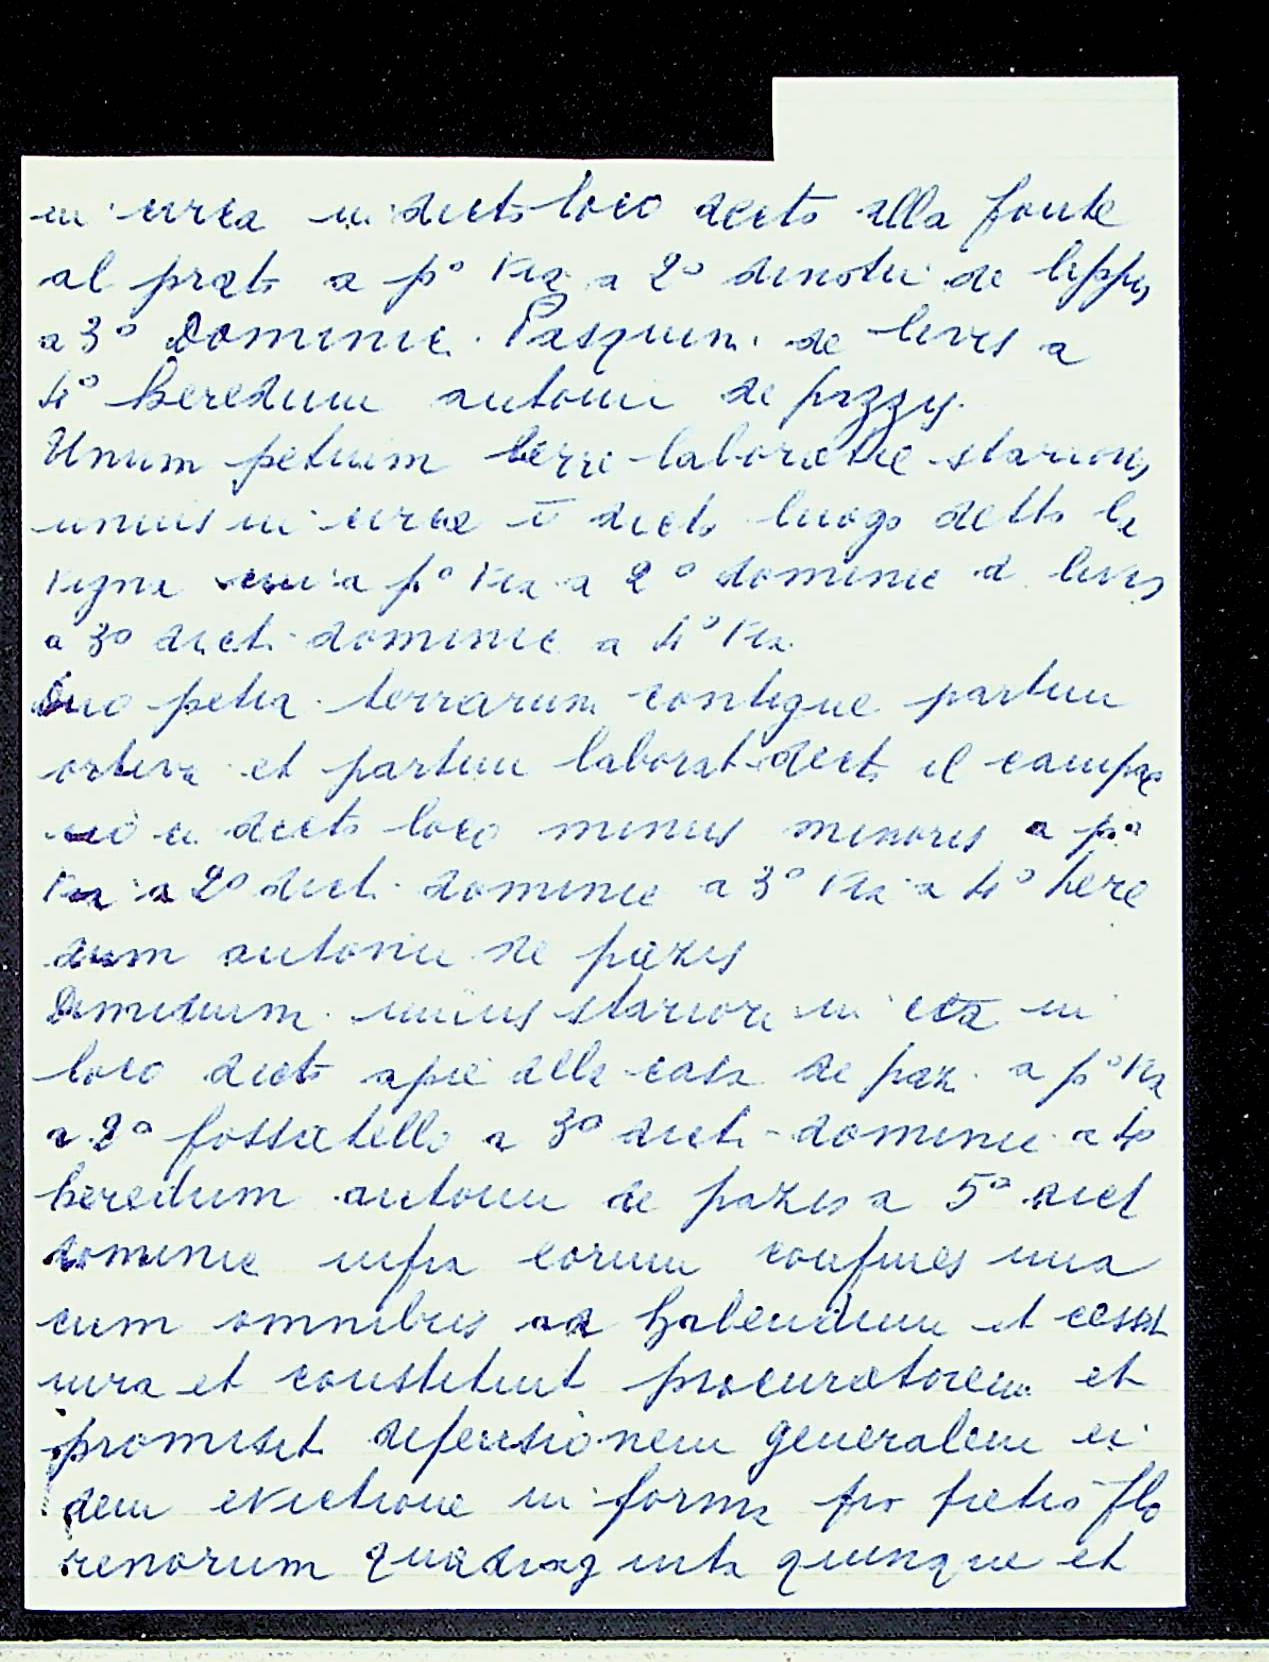 in circa in dicto loco decto alla fonte
al prato a p° via a 2°  de lippis
a 3° Dominic. Pasquini de levis a
4° heredum antonii de pazzis
Unum petium terre laborative starioris
unius in circa i dicto luogo detto la
vigna a p° via a 2° dominic d levis
a 3° dicti dominic a 4° via
Duo petia terrarum contigue partim
ortiva et partim laborat dect il campac
cio in decto loco minus minoris a p°
via a 2° dict dominic a 3° via a 4° here
dum antonii de pazis
Dimidium unius starior in cca in
loco dicto apie alla casa de paz a p° via
a 2° fossatello a 3° dicti dominic a 4°
heredum antonii de pazis a 5° dict
dominic infra eorum confines una
cum omnibus ad habendum et cessit
iura et constituit procuratorem et
promisit defensionem generalem ei
dem evictione in forma pro pretio flo
renorum quadraginta quinque et